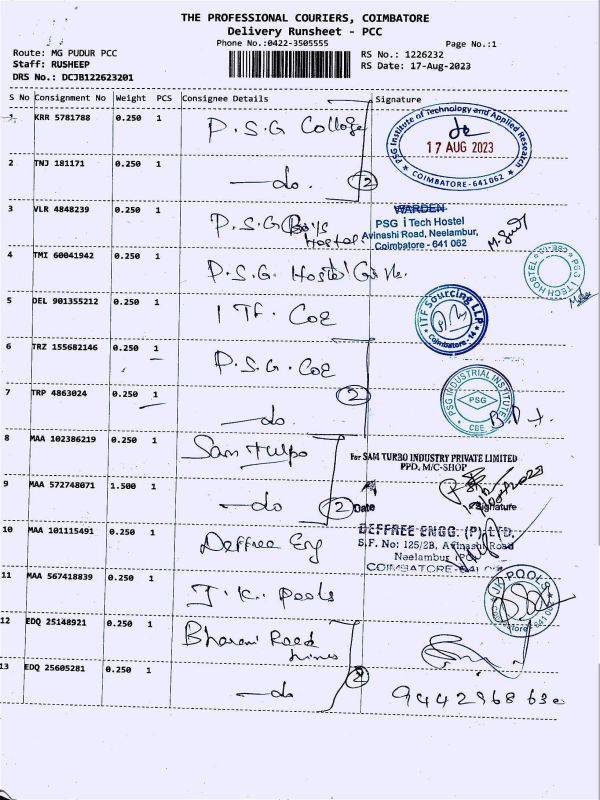 THE PROFESSIONAL COURIERS, COIMBATORE
Delivery Runsheet - PCC
Phone No.:0422-3505555
Page No.:1
Route: MG PUDUR PCC
RS No.: 1226232
Staff: RUSHEEP
RS Date: 17-Aug-2023
DRS No.: DCJB122623201
S No Consignment No Weight PCS Consignee Details Signature
1 KRR 5781788 0.250 1 P.S.G College
PSG Institute of Technology and Applied Research
17 AUG 2023
COIMBATORE-641062
2 TNJ 181171 0.250 1 —do. 2
3 VLR 4848239 0.250 1 P.S.G Boys Hostel
WARDEN
PSG iTech Hostel
Avinashi Road, Neelambur,
Coimbatore - 641 062
4 TMI 60041942 0.250 1 P.S.G. Hostel
PSG ITECH HOSTEL
5 DEL 901355212 0.250 1 ITF. COE
ITF Sourcing LLP
Coimbatore-14
6 TRZ 155682146 0.250 1 P.S.G. COE
PSG INDUSTRIAL INSTITUTE
PSG
CBE
7 TRP 4863024 0.250 1 —do. 2
8 MAA 102386219 0.250 1 Sam Turbo
For SAM TURBO INDUSTRY PRIVATE LIMITED
PPD, M/C-SHOP
9 MAA 572748071 1.500 1 —do 2
Date Signature
10 MAA 101115491 0.250 1 Deffree Eng
DEFFREE ENGG. (P) LTD.
S.F. No: 125/2B, Avinashi Road
Neelambur (PO)
COIMBATORE-641
11 MAA 567418839 0.250 1 J.K. Pools
JK POOLS
12 EDQ 25148921 0.250 1 Bharani Reed
13 EDQ 25605281 0.250 1 —do 2
9442968630